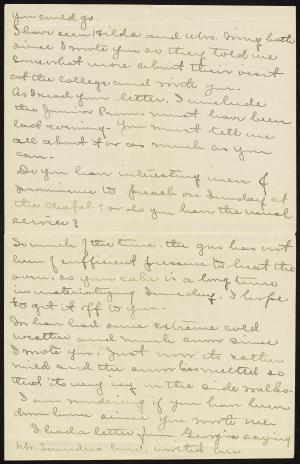 you could go.
I have seen Hilda and Mrs. King both
since I wrote you so they told me
somewhat more about their visit
at the college and wrote you.
As I read your letter, I conclude
the Junior Prom. must have been
last evening. You must tell me
all about it or as much as you
can.
Do you have interesting men of
prominence to preach on Sunday at
the chapel? or do you have the usual
service?
So much of the time the gas has not
been of sufficient pressure to heat the
oven so your cake is a long time
in materializing Sunday. I hope
to get it off to you.
We have had some extreme cold
weather and much snow since
I wrote you. Just now its rather
mild and the snow has melted so
that its very icy on the side walks.
I am wondering if you have been
down home since you wrote me.
I had a letter from Georgia saying
Mrs. Saunders had invited her